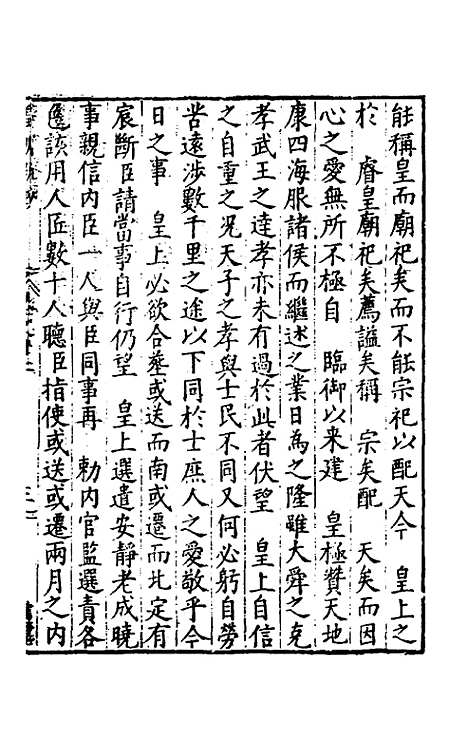 能稱皇而廟祀矣而不能宗祀以配天今 皇上之
於 睿皇廟祀矣薦謚矣稱 宗矣配 天矣而因
心之愛無所不極自 臨御以来建 皇極贊天地
康四海服諸侯而繼述之業日為之隆雖大舜之克
孝武王之達孝亦未有過於此者伏望 皇上自信
之自重之况天子之孝與士民不同又何必躬自勞
苦遠涉數千里之途以下同於士庶人之愛敬乎今
日之事 皇上必欲合塟或送而南或遷而北定有
宸斷臣請當事自行仍望 皇上選遣安靜老成曉
事親信内臣一人與臣同事再 勅内官監選責各
該用人匠數十人聽臣指使或送或遷兩月之内